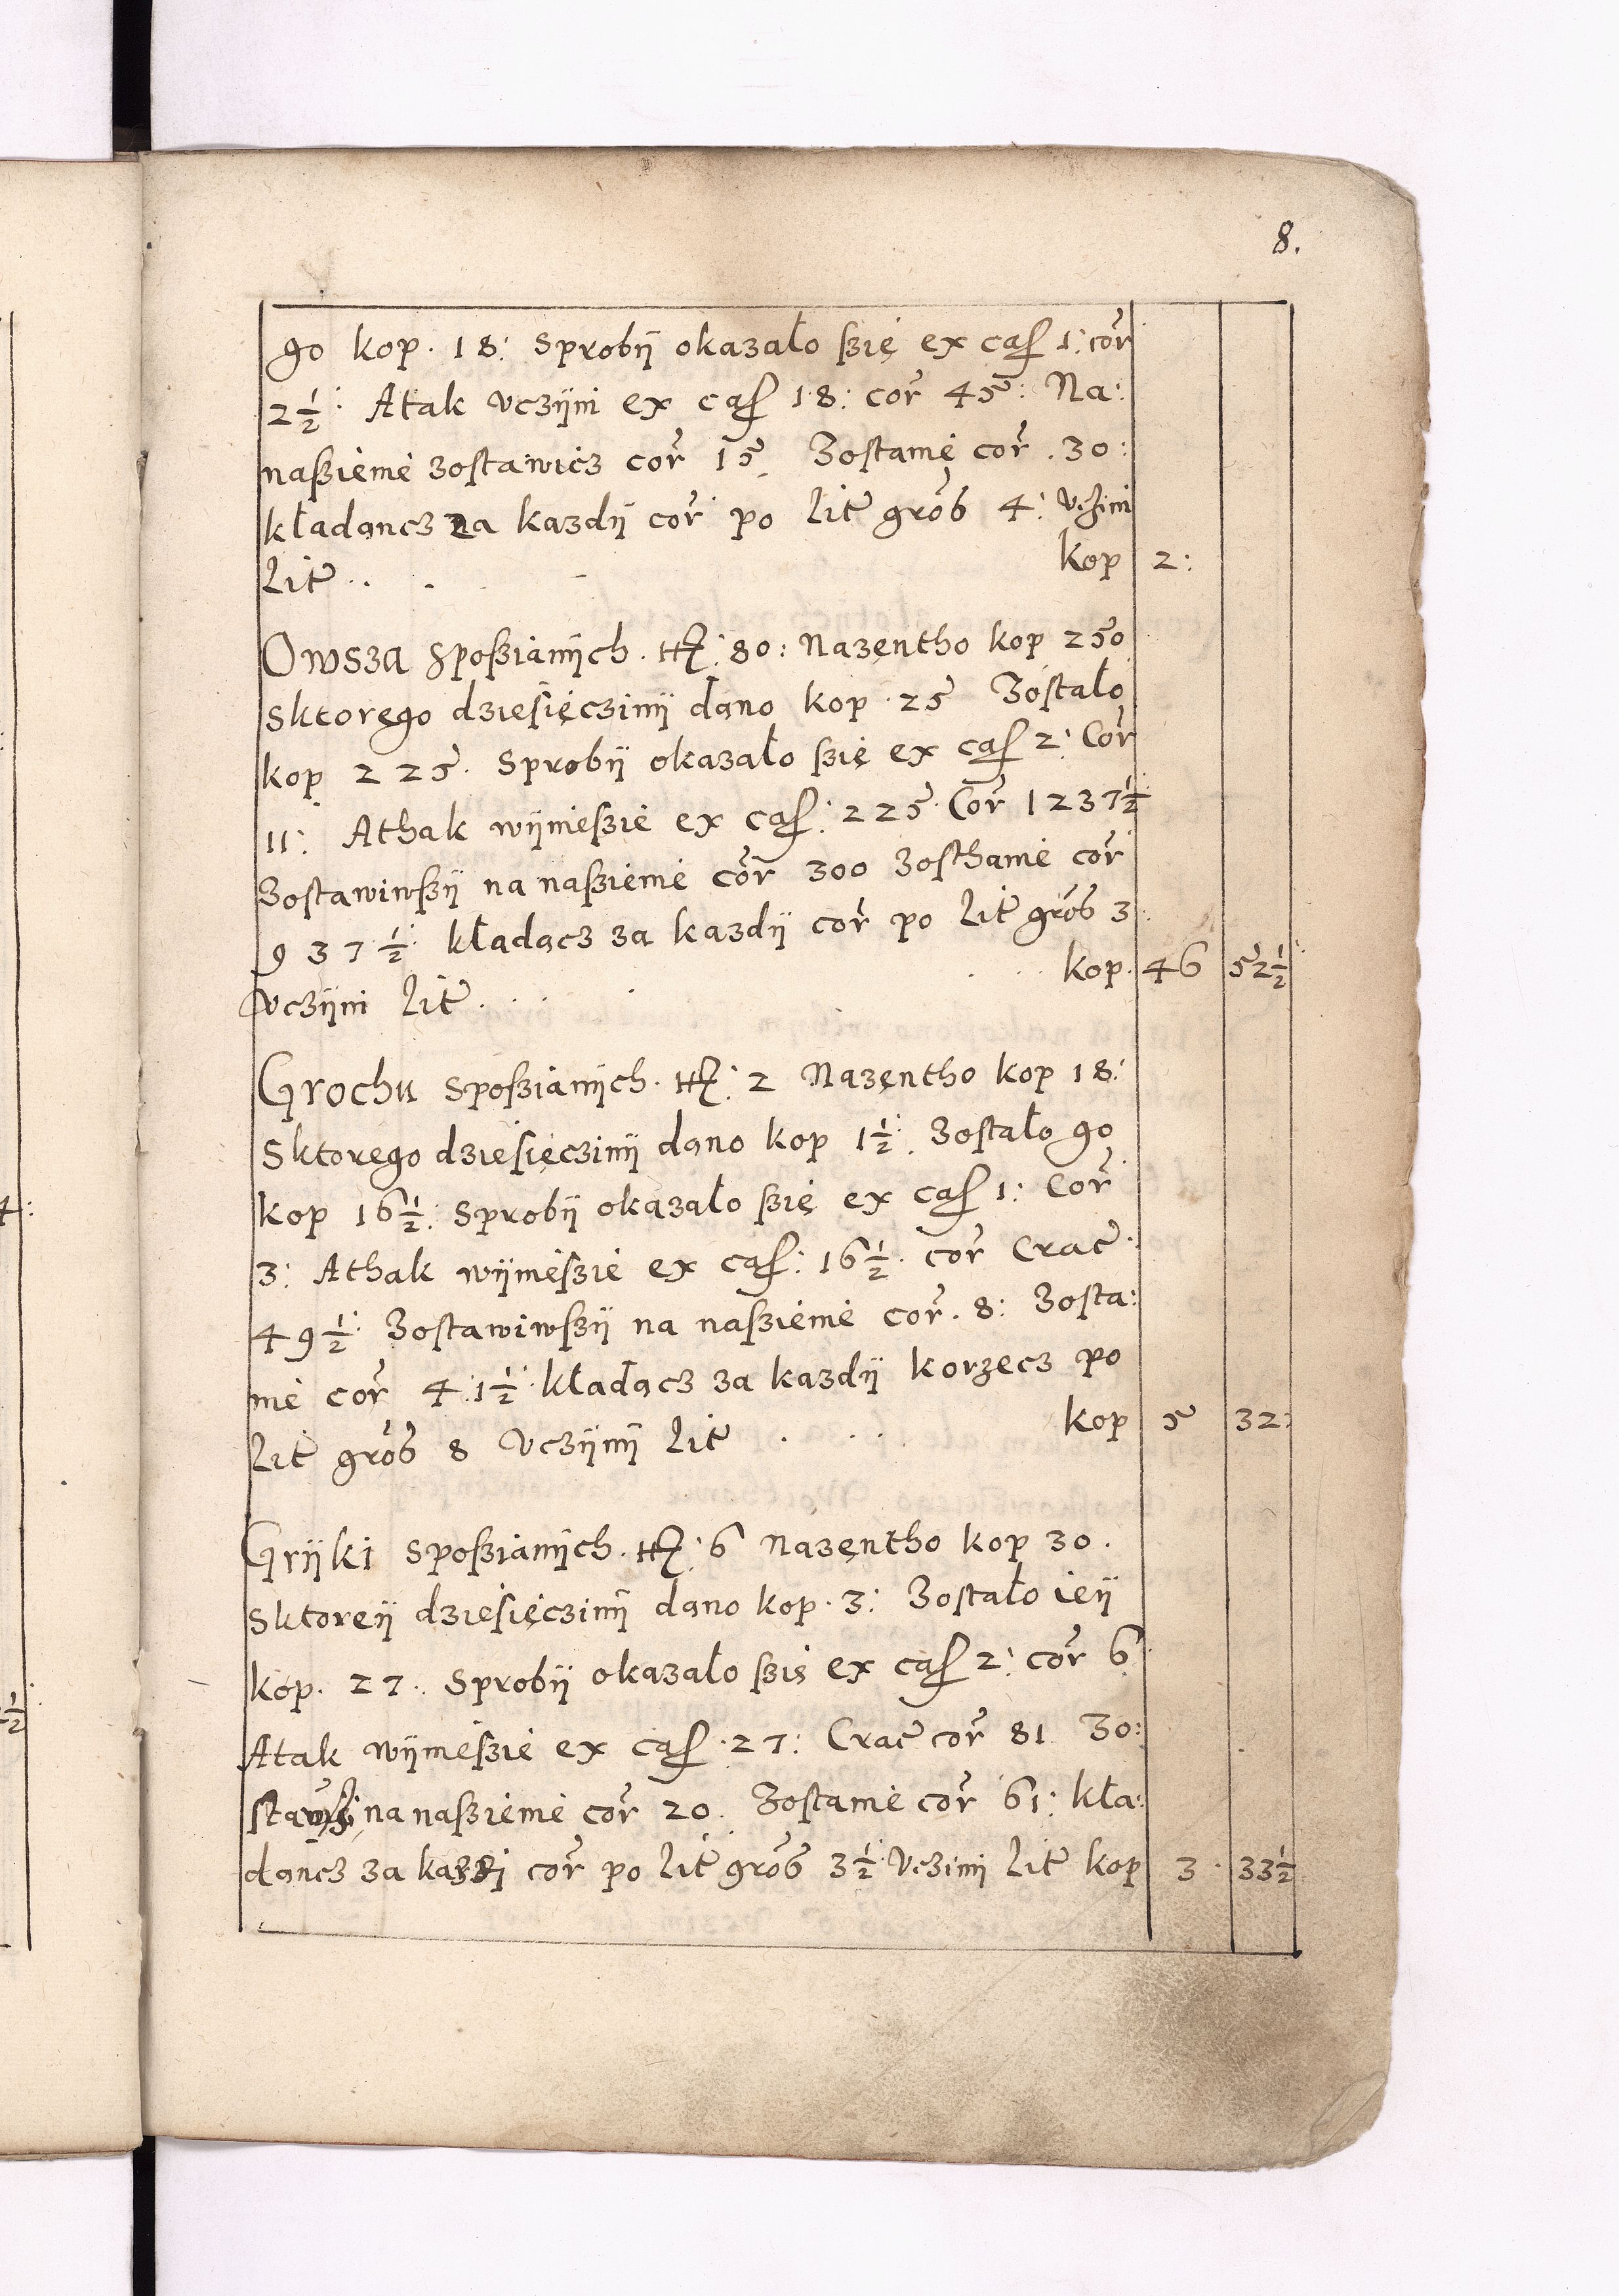 8.
go kop. 18: Sprobÿ okazało ßzię ex caß 1: cor̃
2½: Atak vczÿni ex caß 18: cor̃ 45: Na:
naßienié zostawicz cor̃ 15 Zostanię cor̃. 30:
kładąncz za kazdÿ cor̃ po lit̃ grõß 4: vczini
Lit̃ . . . kop 2:
Owsza Spoßianÿch. 80: Nazentho kop 250
Sktorego dziesięczinÿ dano kop. 25 Zostało
kop 225. Sprobÿ okazało ßzię ex caß 2: Cor̃
11: Athak wÿnießzie ex caß: 225 Cor̃ 1237½
Zostawiwßÿ na naßienié cor̃ 300 Zosthanié cor̃
937½: kładącz za kazdÿ cor̃ po lit̃ grõß 3:
vczÿni lit̃ . . . kop. 46 52½:
Grochu Spoßianÿch. 2 Nazentho kop 18:
Sktorego dziesięczinÿ dano kop 1½: Zostało go
kop 16½: Sprobÿ okazało ßzię ex caß 1: Cor̃
3: Athak wÿnießzie ex caß: 16½. cor̃ Crac̃.
49½: Zostawiwßÿ na naßienié cor̃. 8: Zosta:
nié cor̃ 41½: kładącz za kazdÿ korzecz po
Lit̃ grõß 8 Vczÿnÿ lit̃ . . . kop 5 32:
Grÿki Spoßianÿch. 6 Nazentho kop 30.
Sktoreÿ dziesięczinÿ dano kop. 3: Zostało ieÿ
kop. 27. Sprobÿ okazało ßzię ex caß 2: cor̃ 6:
Atak wÿnießzie ex caß. 27: Crac̃ cor̃ 81 Zo:
na naßienié cor̃ 20. Zostanié cor̃ 61: kła:
dąncz za kazdi cor̃ po lit̃ grõß 3½: Vczini lit̃ kop 3. 33½